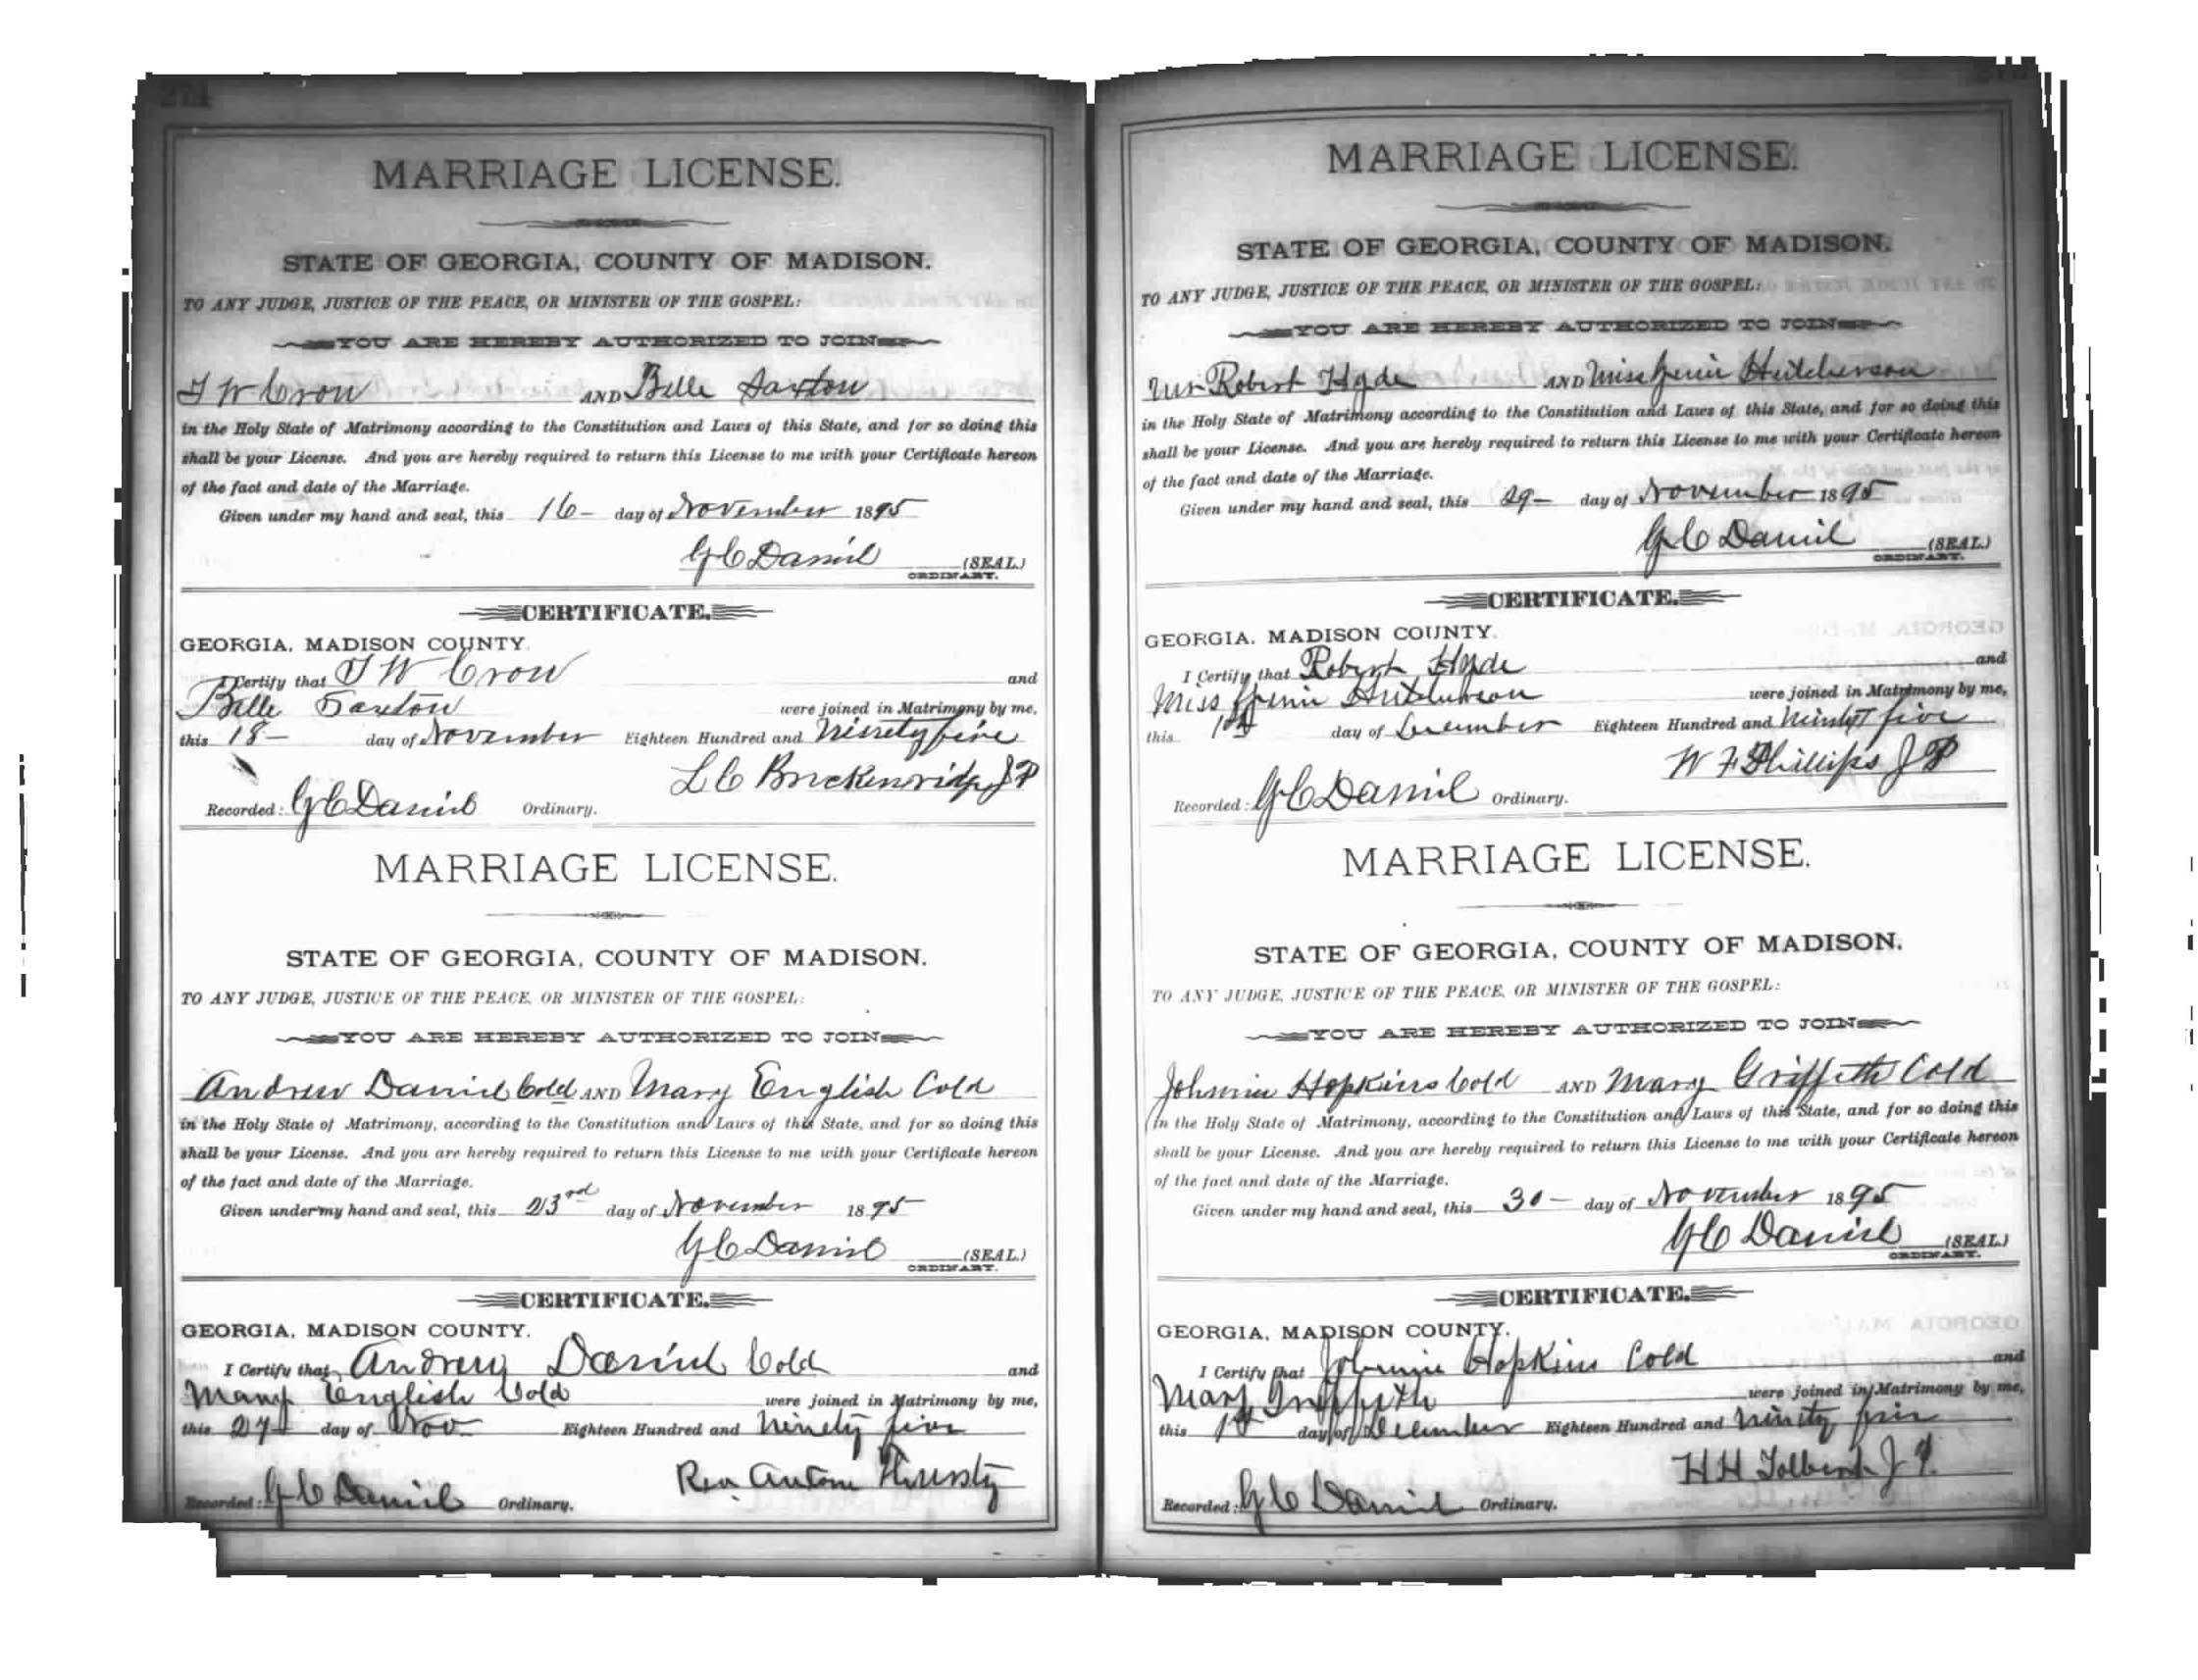 274
MARRIAGE LICENSE.
STATE OF GEORGIA, COUNTY OF MADISON.
TO ANY JUDGE, JUSTICE OF THE PEACE, OR MINISTER OF THE GOSPEL:
YOU ARE HEREBY AUTHORIZED TO JOIN
T W Crow AND Belle Saxton
in the Holy State of Matrimony according to the Constitution and Laws of this State, and for so doing this
shall be your License. And you are hereby required to return this License to me with your Certificate hereon
of the fact and date of the Marriage.
Given under my hand and seal, this 16- day of November 1895
G C Daniel (SEAL.)
ORDINARY.
CERTIFICATE.
GEORGIA, MADISON COUNTY.
I Certify that T W Crow and
Belle Saxton were joined in Matrimony by me,
this 18- day of November Eighteen Hundred and Ninety five
L C Brickenridge J P
Recorded: G C Daniel Ordinary.
MARRIAGE LICENSE.
STATE OF GEORGIA, COUNTY OF MADISON.
TO ANY JUDGE, JUSTICE OF THE PEACE, OR MINISTER OF THE GOSPEL:
YOU ARE HEREBY AUTHORIZED TO JOIN
Andrew Daniel Cold AND Mary English Cold
in the Holy State of Matrimony, according to the Constitution and Laws of this State, and for so doing this
shall be your License. And you are hereby required to return this License to me with your Certificate hereon
of the fact and date of the Marriage.
Given under my hand and seal, this 23rd day of November 1895
G C Daniel (SEAL.)
ORDINARY.
CERTIFICATE.
GEORGIA, MADISON COUNTY.
I Certify that Andrew Daniel Cold and
Mary English Cold were joined in Matrimony by me,
this 27 day of Nov Eighteen Hundred and Ninety five
Rev
Recorded: G C Daniel Ordinary.
MARRIAGE LICENSE.
STATE OF GEORGIA, COUNTY OF MADISON.
TO ANY JUDGE, JUSTICE OF THE PEACE, OR MINISTER OF THE GOSPEL:
YOU ARE HEREBY AUTHORIZED TO JOIN
Mr Robert Hyde AND Miss Hutcherson
in the Holy State of Matrimony according to the Constitution and Laws of this State, and for so doing this
shall be your License. And you are hereby required to return this License to me with your Certificate hereon
of the fact and date of the Marriage.
Given under my hand and seal, this 29- day of November 1895
G C Daniel (SEAL.)
ORDINARY.
CERTIFICATE.
GEORGIA, MADISON COUNTY.
I Certify that Robert Hyde and
Miss were joined in Matrimony by me,
this 1st day of December Eighteen Hundred and Ninety five
W F Phillips J P
Recorded: G C Daniel Ordinary.
MARRIAGE LICENSE.
STATE OF GEORGIA, COUNTY OF MADISON.
TO ANY JUDGE, JUSTICE OF THE PEACE, OR MINISTER OF THE GOSPEL:
YOU ARE HEREBY AUTHORIZED TO JOIN
Johnnie Hopkins Cold AND Mary Griffeth Cold
in the Holy State of Matrimony, according to the Constitution and Laws of this State, and for so doing this
shall be your License. And you are hereby required to return this License to me with your Certificate hereon
of the fact and date of the Marriage.
Given under my hand and seal, this 30- day of November 1895
G C Daniel (SEAL.)
ORDINARY.
CERTIFICATE.
GEORGIA, MADISON COUNTY.
I Certify that Johnnie Hopkins Cold and
Mary Griffeth were joined in Matrimony by me,
this 1st day of December Eighteen Hundred and Ninety five
H H Tolbert J P.
Recorded: G C Daniel Ordinary.